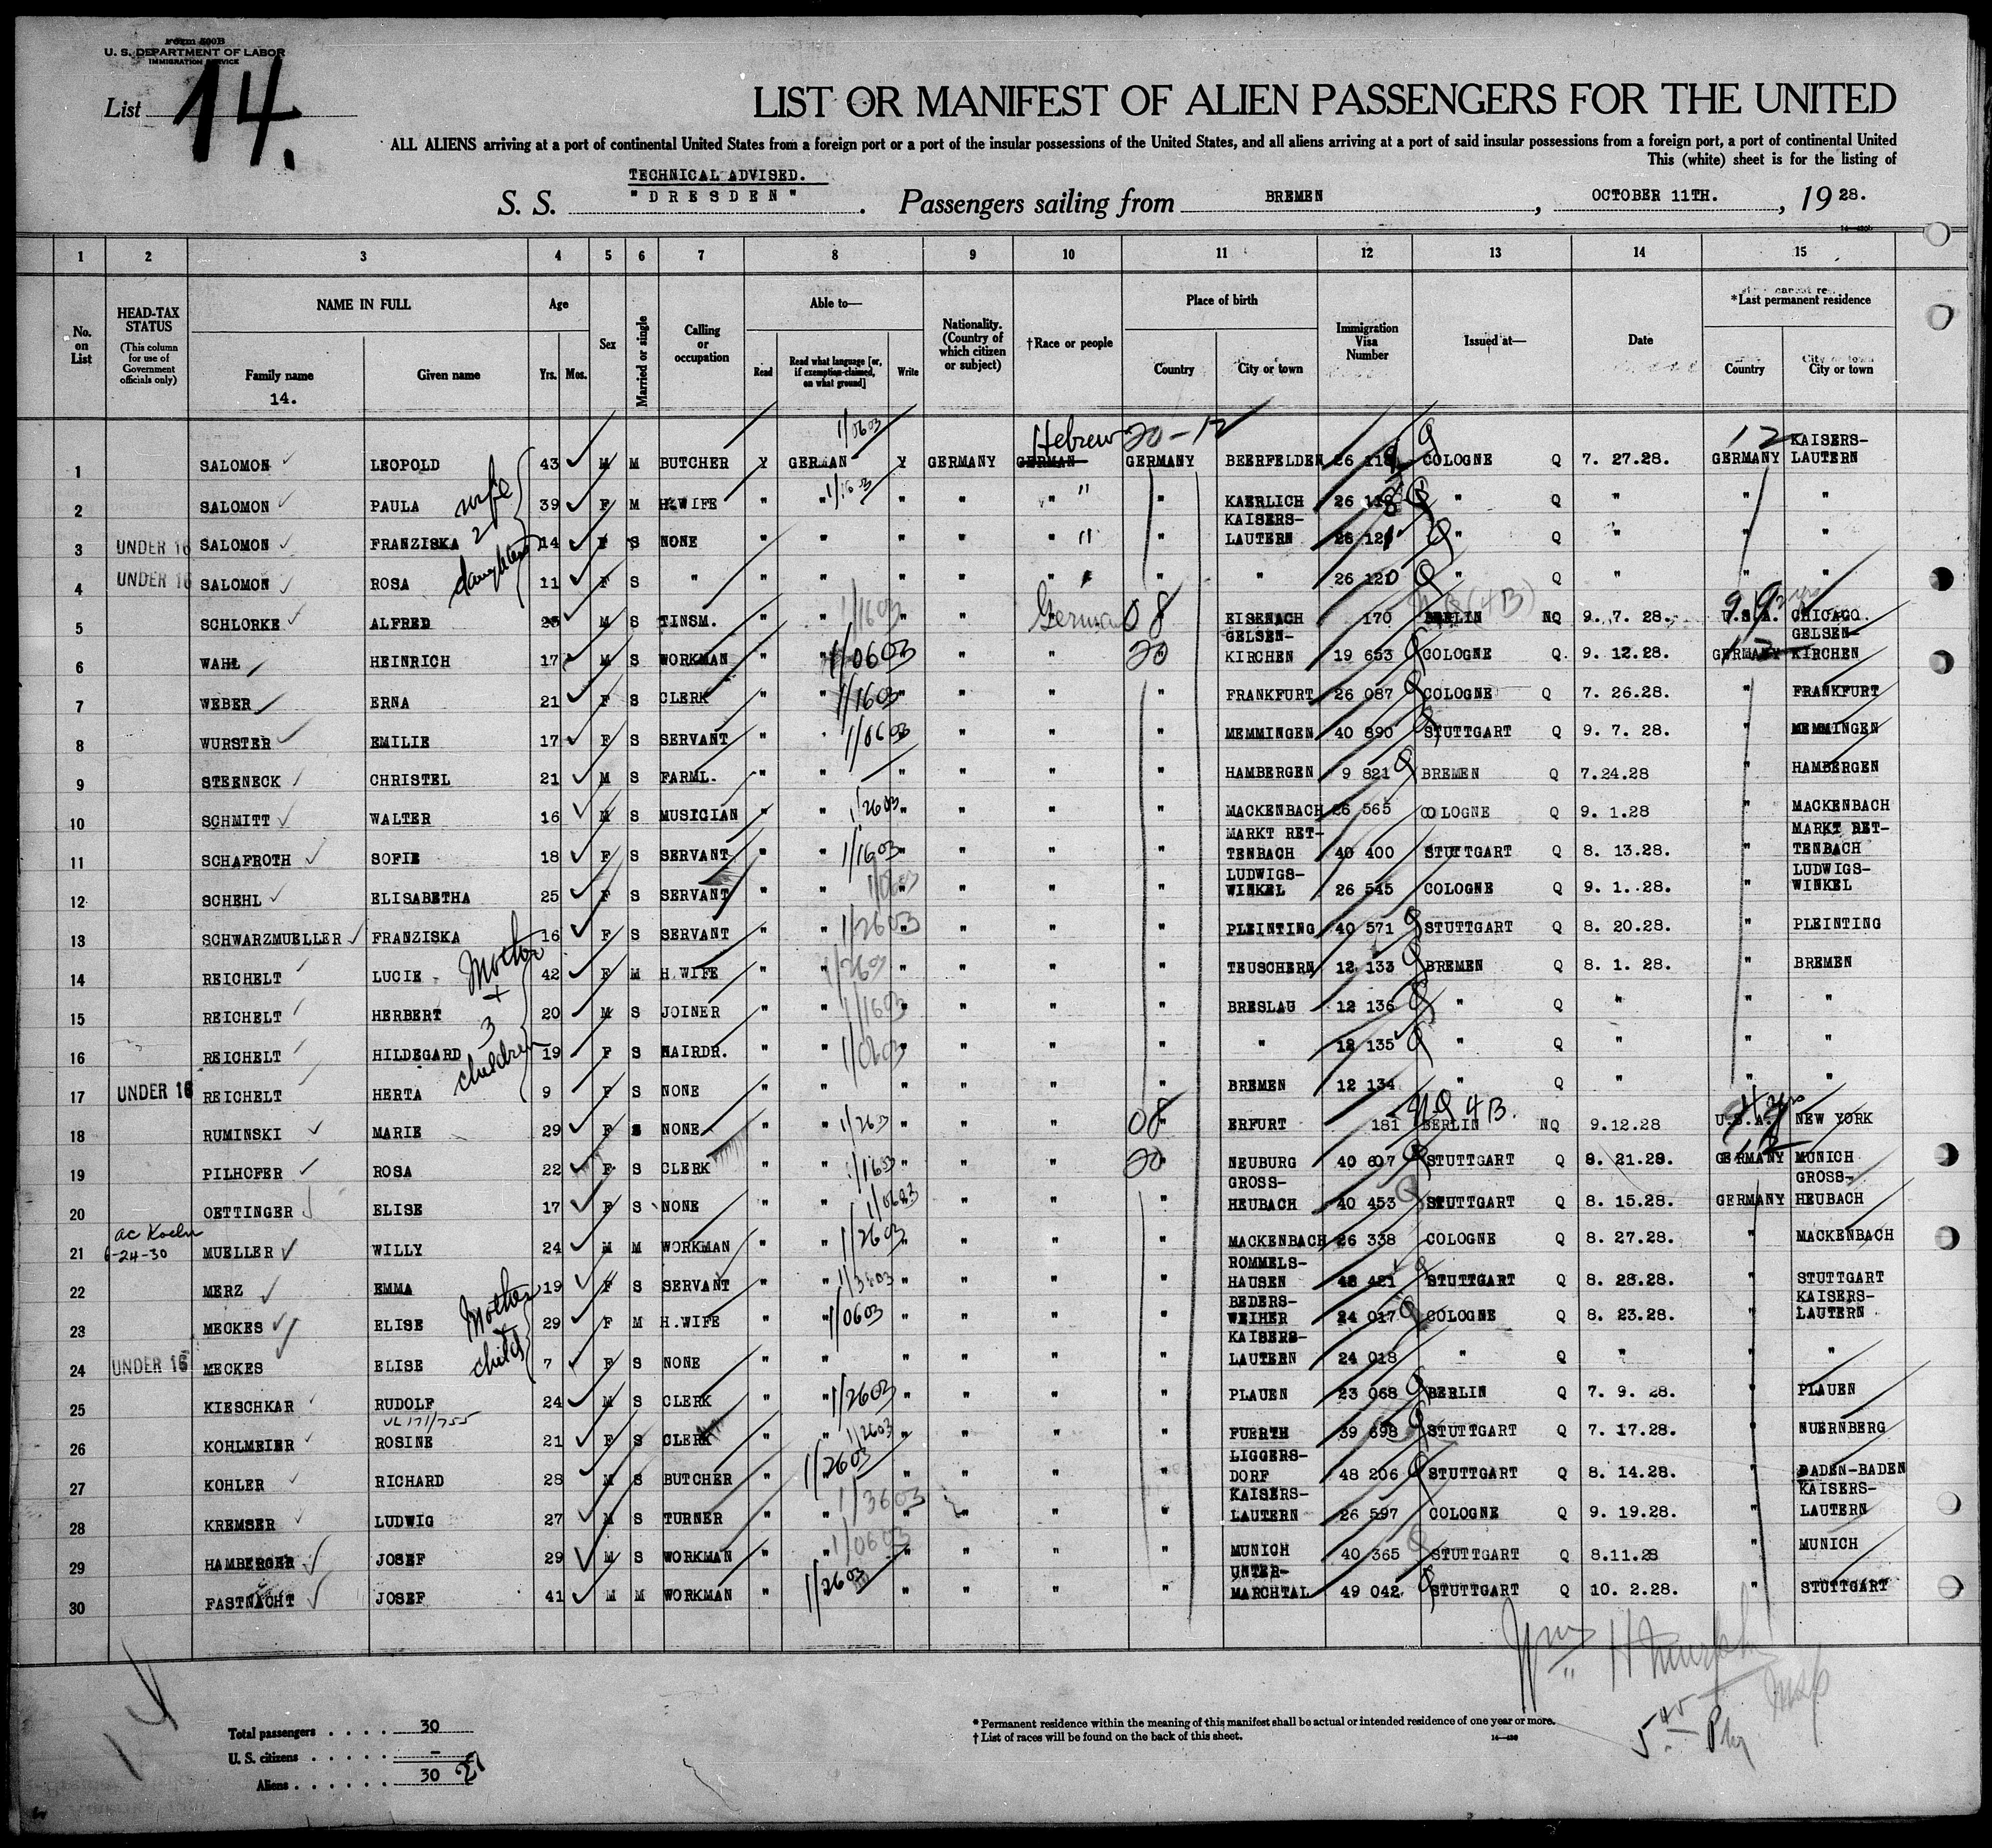 Form 500B
U. S. DEPARTMENT OF LABOR
IMMIGRATION SERVICE
List 14.
LIST OR MANIFEST OF ALIEN PASSENGERS FOR THE UNITED
ALL ALIENS arriving at a port of continental United States from a foreign port or a port of the insular possessions of the United States, and all aliens arriving at a port of said insular possessions from a foreign port, a port of continental United
This (white) sheet is for the listing of
TECHNICAL ADVISED.
S. S. "DRESDEN". Passengers sailing from BREMEN, OCTOBER 11TH., 1928.
1 2 3 4 5 6 7 8 9 10 11 12 13 14 15
No. on List
HEAD-TAX STATUS
(This column for use of Government officials only)
NAME IN FULL
Family name
14.
Given name
Age
Yrs. Mos.
Sex
Married or single
Calling or occupation
Able to—
Read
Read what language [or, if exemption claimed, on what ground]
Write
Nationality. (Country of which citizen or subject)
†Race or people
Place of birth
Country
City or town
Immigration Visa Number
Issued at—
Date
*Last permanent residence
Country
City or town
Hebrew 20-12 12 KAISERS-
1 SALOMON LEOPOLD 43 M M BUTCHER Y GERMAN Y GERMANY GERMAN GERMANY BEERFELDEN 26 118 COLOGNE Q 7. 27.28. GERMANY LAUTERN
2 SALOMON PAULA wife 39 F M H.WIFE " " " " " " KAERLICH 26 119 " Q " " "
KAISERS-
3 UNDER 16 SALOMON FRANZISKA 2 14 F S NONE " " " " " " LAUTERN 26 121 " Q " " "
4 UNDER 16 SALOMON ROSA daughters 11 F S " " " " " " " " 26 120 " Q " " "
5 SCHLORKE ALFRED 25 M S TINSM. " " " " German 08 EISENACH 170 BERLIN NQ 9. 7. 28. U.S.A. CHICAGO
GELSEN- GELSEN-
6 WAHL HEINRICH 17 M S WORKMAN " " " " " 20 KIRCHEN 19 653 COLOGNE Q 9. 12.28. GERMANY KIRCHEN
7 WEBER ERNA 21 F S CLERK " " " " " " FRANKFURT 26 087 COLOGNE Q 7. 26.28. " FRANKFURT
8 WURSTER EMILIE 17 F S SERVANT " " " " " " MEMMINGEN 40 890 STUTTGART Q 9. 7. 28. " MEMMINGEN
9 STEENECK CHRISTEL 21 M S FARML. " " " " " " HAMBERGEN 9 821 BREMEN Q 7.24.28 " HAMBERGEN
10 SCHMITT WALTER 16 M S MUSICIAN " " " " " " MACKENBACH 26 565 COLOGNE Q 9. 1.28 " MACKENBACH
MARKT RET- MARKT RET-
11 SCHAFROTH SOFIE 18 F S SERVANT " " " " " " TENBACH 40 400 STUTTGART Q 8. 13.28. " TENBACH
LUDWIGS- LUDWIGS-
12 SCHEHL ELISABETHA 25 F S SERVANT " " " " " " WINKEL 26 545 COLOGNE Q 9. 1. 28. " WINKEL
13 SCHWARZMUELLER FRANZISKA 16 F S SERVANT " " " " " " PLEINTING 40 571 STUTTGART Q 8. 20.28. " PLEINTING
14 REICHELT LUCIE Mother 42 F M H.WIFE " " " " " " TEUSCHERN 12 133 BREMEN Q 8. 1. 28. " BREMEN
15 REICHELT HERBERT + 20 M S JOINER " " " " " " BRESLAU 12 136 " Q " " "
16 REICHELT HILDEGARD 3 19 F S HAIRDR. " " " " " " " 12 135 " Q " " "
17 UNDER 16 REICHELT HERTA children 9 F S NONE " " " " " " BREMEN 12 134 " Q " " "
18 RUMINSKI MARIE 29 F S NONE " " " " " 08 ERFURT 181 NQ 4B. BERLIN NQ 9.12.28 U.S.A. NEW YORK
19 PILHOFER ROSA 22 F S CLERK " " " " " 20 NEUBURG 40 607 STUTTGART Q 8. 21.28. GERMANY MUNICH
GROSS- GROSS-
20 OETTINGER ELISE 17 F S NONE " " " " " " HEUBACH 40 453 STUTTGART Q 8. 15.28. GERMANY HEUBACH
ac Koeln
21 6-24-30 MUELLER WILLY 24 M M WORKMAN " " " " " " MACKENBACH 26 338 COLOGNE Q 8. 27.28. " MACKENBACH
ROMMELS-
22 MERZ EMMA 19 F S SERVANT " " " " " " HAUSEN 48 421 STUTTGART Q 8. 28.28. " STUTTGART
BEDERS- KAISERS-
23 MECKES ELISE Mother 29 F M H.WIFE " " " " " " WEIHER 24 017 COLOGNE Q 8. 23.28. " LAUTERN
KAISERS-
24 UNDER 16 MECKES ELISE child 7 F S NONE " " " " " " LAUTERN 24 018 " Q " " "
25 KIESCHKAR RUDOLF 24 M S CLERK " " " " " " PLAUEN 23 068 BERLIN Q 7. 9. 28. " PLAUEN
VL 171/755
26 KOHLMEIER ROSINE 21 F S CLERK " " " " " " FUERTH 39 698 STUTTGART Q 7. 17.28. " NUERNBERG
LIGGERS-
27 KOHLER RICHARD 28 M S BUTCHER " " " " " " DORF 48 206 STUTTGART Q 8. 14.28. " BADEN-BADEN
KAISERS- KAISERS-
28 KREMSER LUDWIG 27 M S TURNER " " " " " " LAUTERN 26 597 COLOGNE Q 9. 19.28. " LAUTERN
29 HAMBERGER JOSEF 29 M S WORKMAN " " " " " " MUNICH 40 365 STUTTGART Q 8.11.28 " MUNICH
UNTER-
30 FASTNACHT JOSEF 41 M M WORKMAN " " " " " " MARCHTAL 49 042 STUTTGART Q 10. 2.28. " STUTTGART
Total passengers . . . . 30
U. S. citizens . . . . . –
Aliens . . . . . . 30
* Permanent residence within the meaning of this manifest shall be actual or intended residence of one year or more.
† List of races will be found on the back of this sheet.